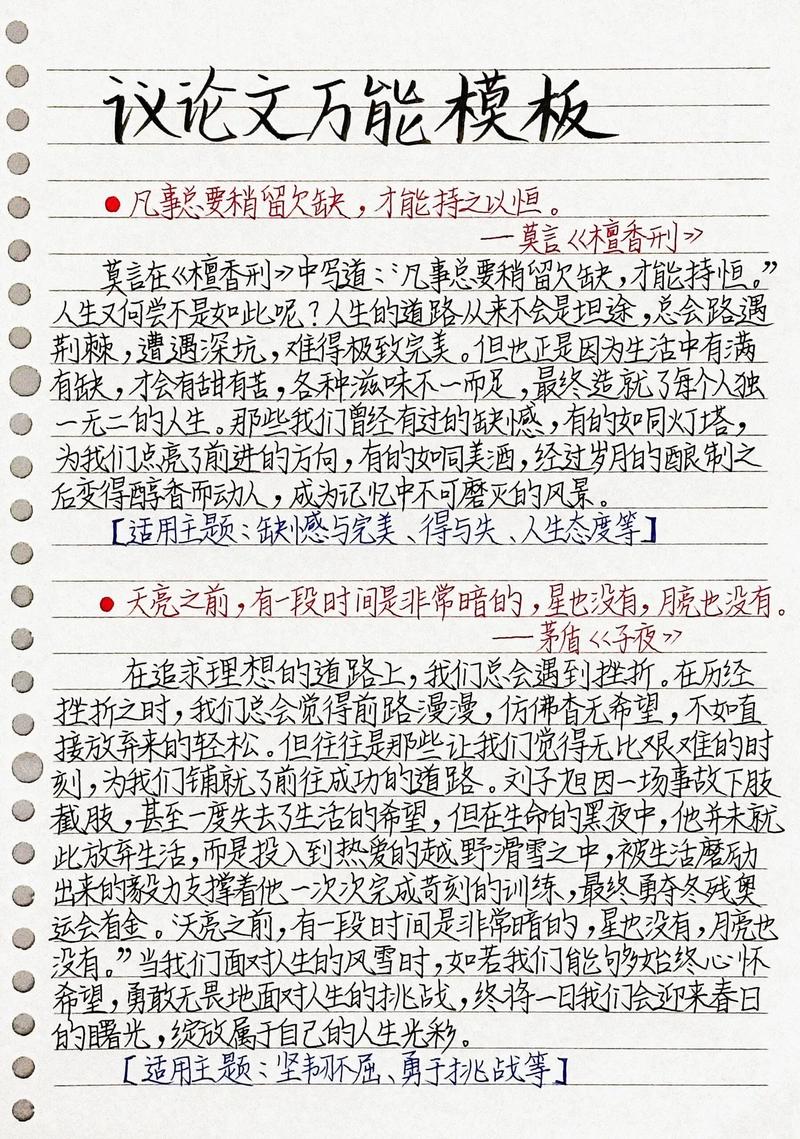 议论文万能模板
●凡事总要稍留欠缺，才能持之以恒。
——莫言《檀香刑》
莫言在《檀香刑》中写道：“凡事总要稍留欠缺，才能持恒。”
人生又何尝不是如此呢？人生的道路从来不会是坦途，总会路遇
荆棘，遭遇深坑，难得极致完美。但也正是因为生活中有满
有缺，才会有甜有苦，各种滋味不一而足，最终造就了每个人独
一无二的人生。那些我们曾经有过的缺憾，有的如同灯塔，
为我们点亮了前进的方向，有的如同美酒，经过岁月的酿制之
后变得醇香而动人，成为记忆中不可磨灭的风景。
[适用主题：缺憾与完美、得与失、人生态度等]
●天亮之前，有一段时间是非常暗的，星也没有，月亮也没有。
——茅盾《子夜》
在追求理想的道路上，我们总会遇到挫折。在历经
挫折之时，我们总会觉得前路漫漫，仿佛杳无希望，不如直
接放弃来的轻松。但往往是那些让我们觉得无比艰难的时
刻，为我们铺就了前往成功的道路。刘子旭因一场事故下肢
截肢，甚至一度失去了生活的希望，但在生命的黑夜中，他并未就
此放弃生活，而是投入到热爱的越野滑雪之中，被生活磨励
出来的毅力支撑着他一次次完成苛刻的训练，最终勇夺冬残奥
运会首金。“天亮之前，有一段时间是非常暗的，星也没有，月亮也
没有。”当我们面对人生的风雪时，如若我们能够始终心怀
希望，勇敢无畏地面对人生的挑战，终将一日我们会迎来春日
的曙光，绽放属于自己的人生光彩。
[适用主题：坚韧不屈、勇于挑战等]